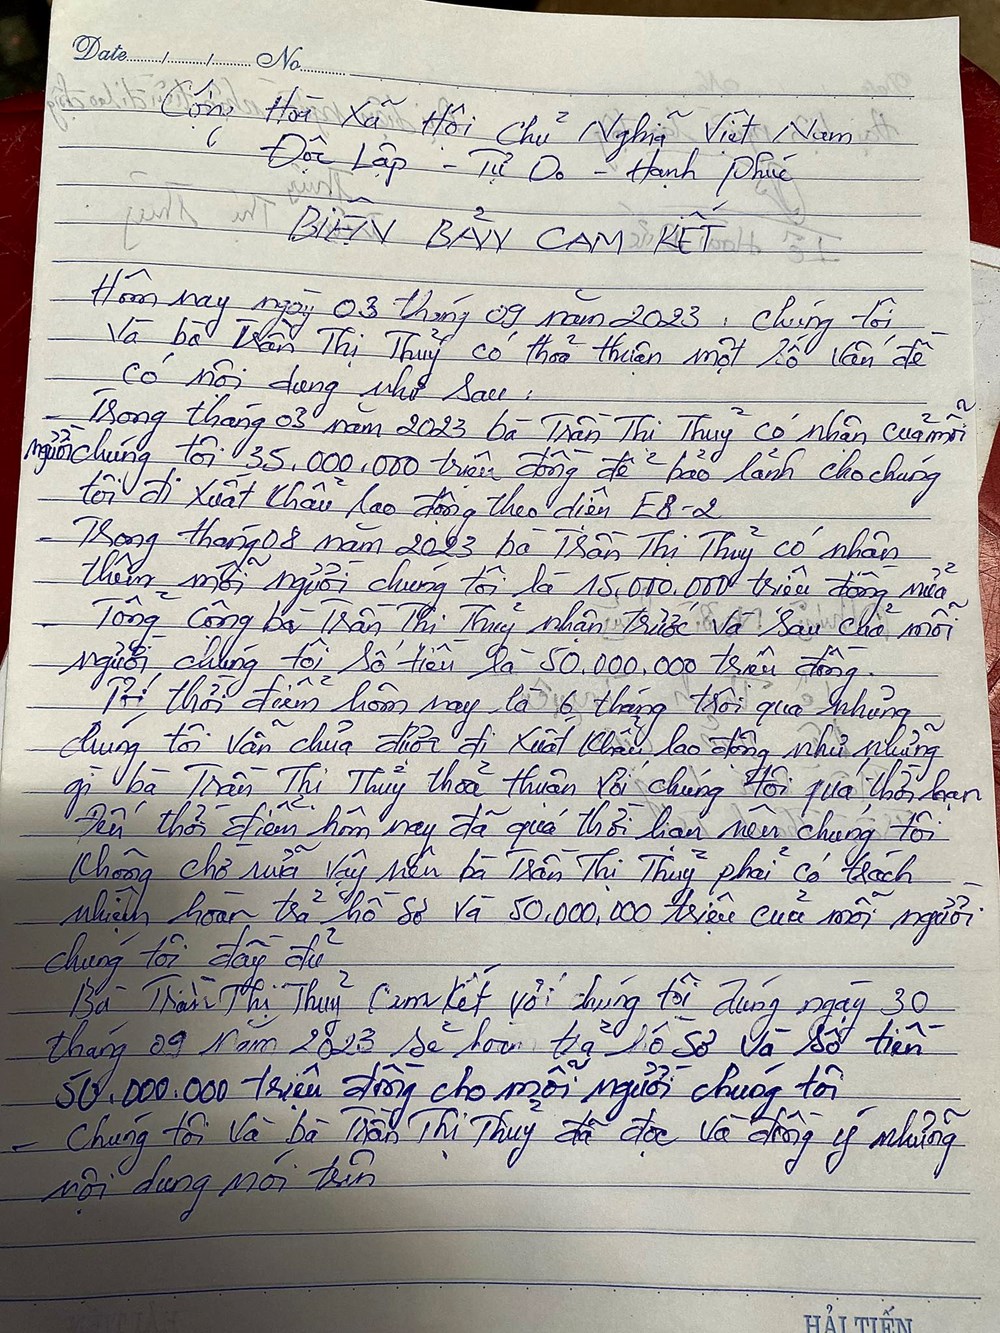 Date......../......../........ No............
Cộng Hoà Xã Hội Chủ Nghĩa Việt Nam
Độc Lập - Tự Do - Hạnh Phúc
BIÊN BẢN CAM KẾT
Hôm nay ngày 03 tháng 09 năm 2023, chúng tôi
Và bà Trần Thị Thuỷ có thoả thuận một số vấn đề
có nội dung như sau:
- Trong tháng 03 năm 2023 bà Trần Thị Thuỷ có nhận của mỗi
người chúng tôi 35.000.000 triệu đồng để bảo lãnh cho chúng
tôi đi xuất khẩu lao động theo diện E8-2
- Trong tháng 08 năm 2023 bà Trần Thị Thuỷ có nhận
thêm mỗi người chúng tôi là 15.000.000 triệu đồng nữa
- Tổng cộng bà Trần Thị Thuỷ nhận trước và sau của mỗi
người chúng tôi số tiền là 50.000.000 triệu đồng.
Từ thời điểm hôm nay là 6 tháng trôi qua nhưng
chúng tôi vẫn chưa được đi xuất khẩu lao động như những
gì bà Trần Thị Thuỷ thoả thuận với chúng tôi quá thời hạn
Đến thời điểm hôm nay đã quá thời hạn nên chúng tôi
không chờ nữa vậy nên bà Trần Thị Thuỷ phải có trách
nhiệm hoàn trả hồ sơ và 50.000.000 triệu của mỗi người
chúng tôi đầy đủ
Bà Trần Thị Thuỷ cam kết với chúng tôi đúng ngày 30
tháng 09 năm 2023 sẽ hoàn trả hồ sơ và số tiền
50.000.000 triệu đồng cho mỗi người chúng tôi
- Chúng tôi và bà Trần Thị Thuỷ đã đọc và đồng ý những
nội dung nói trên
HẢI TIẾN